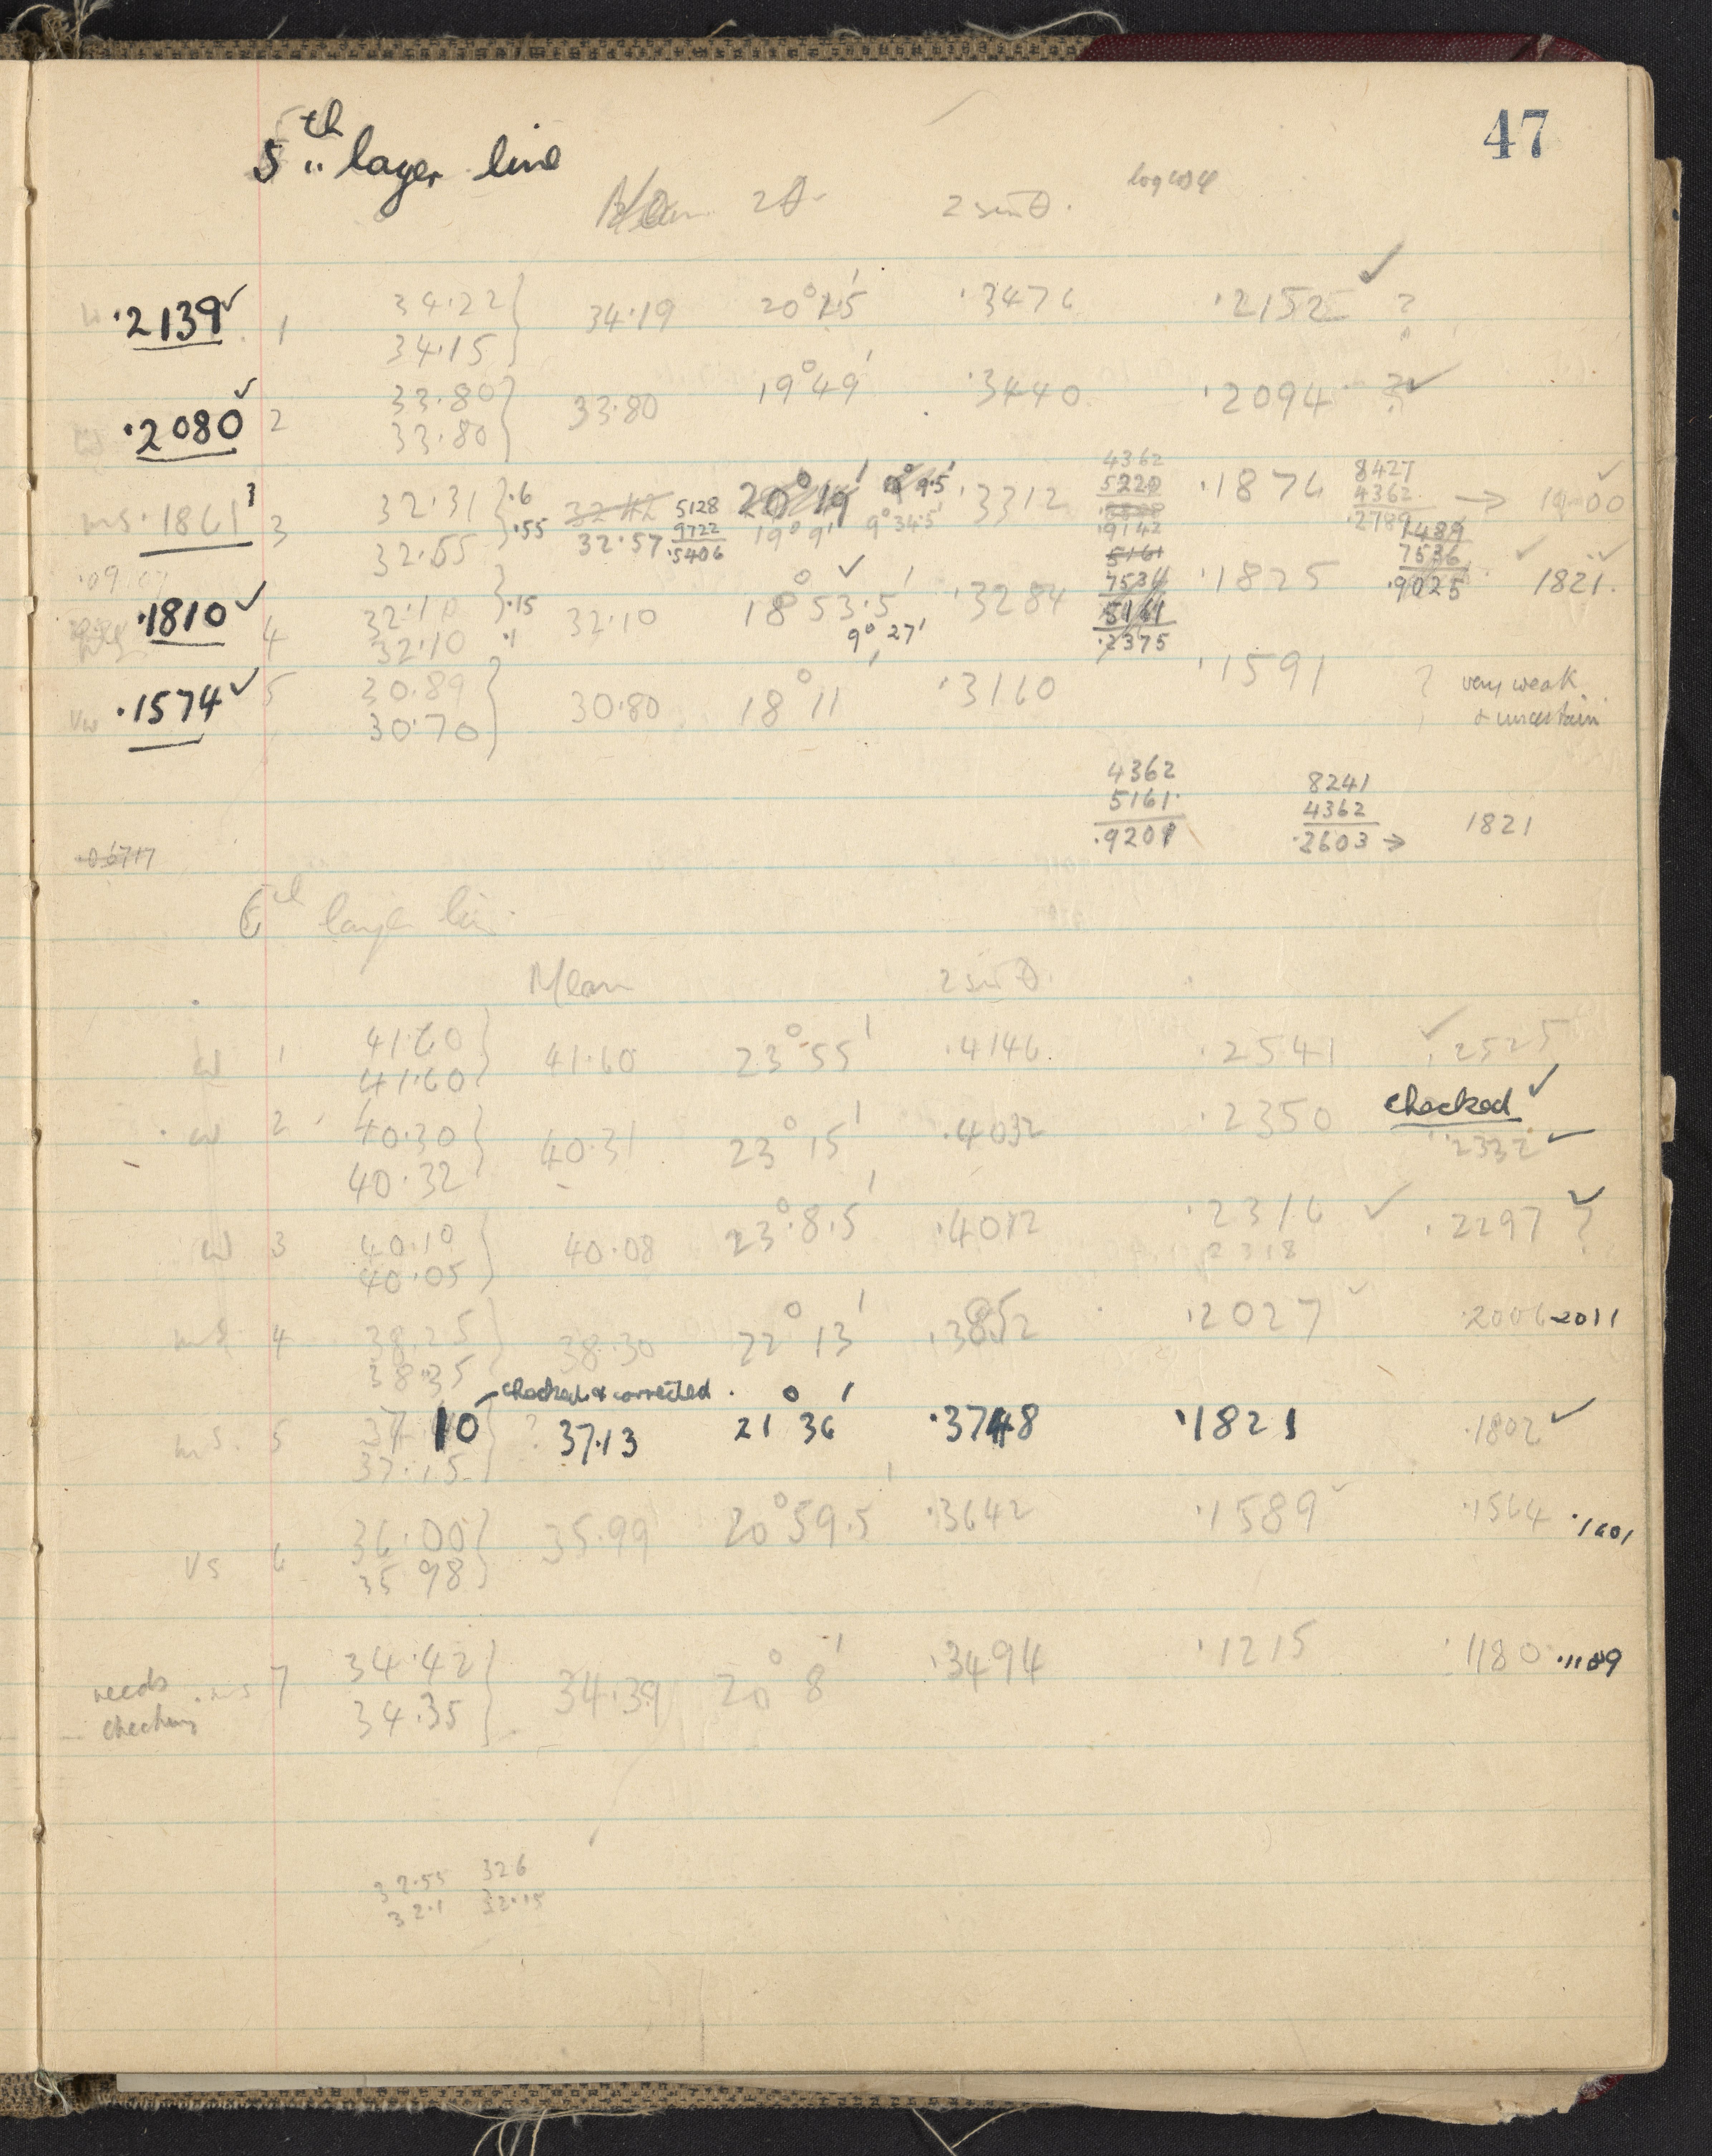 47
5th layer line
Mean 2θ. 2 sin θ. log cos φ
·2139 ✓ 1 34.22 34.19 20° 2.5' ·3476 ·2152 ✓ ?
34.15
·2080 ✓ 2 33.80 33.80 19° 49' ·3440 ·2094 ? ✓
33.80
4362 8427
ms ·1861 3 32.31 .6 32.42 5128 20° 19' 9.5' ·3312 5220 ·1876 4362 → 1900 ✓
32.55 .55 32.57 9722 19° 9' 9° 34.5' ·9142 ·2789
·5406 5161 1489
·1810 ✓ 4 32.10 .15 32.10 18° 53.5' ✓ ·3284 7536 ·1825 7536 ✓ 1821.
32.10 .1 9° 27' 5161 ·9025
·2375
vw ·1574 ✓ 5 30.89 30.80 18° 11' ·3160 ·1591 ? very weak
30.70 & uncertain
4362 8241
5161 4362 1821
·9201 ·2603 →
6th layer line
Mean 2 sin θ.
w 1 41.60 41.60 23° 55' ·4146 ·2541 ✓ ·2525
41.60
w 2 40.30 40.31 23° 15' ·4032 ·2350 checked ✓
40.32 ·2332 ✓
w 3 40.10 40.08 23° 8.5' ·4012 ·2316 ✓ ·2297 ✓ ?
40.05 2318
ms 4 38.25 38.30 22° 13' ·3852 ·2027 ✓ ·2006 2011
38.35
checked & corrected
ms. 5 37.10 ? 37.13 21° 36' ·3748 ·1821 ·1802 ✓
37.15
vs 6 36.00 35.99 20° 59.5' ·3642 ·1589 ✓ ·1564 ·1601
35.98
needs checking ms 7 34.42 34.39 20° 8' ·3494 ·1215 ·1180 ·1189
34.35
32.55 326
32.1 32.15